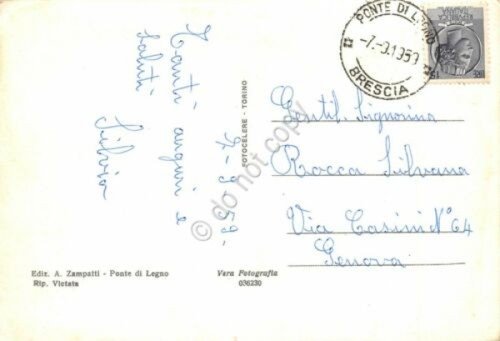 PONTE DI LEGNO
-7.-9.1959
BRESCIA
Tanti auguri e
saluti
Silvia
7-9-59-
FOTOCELERE - TORINO
Gentil. Signorina
Rocca Silvana
Via Casini N° 64
Genova
Ediz. A. Zampatti - Ponte di Legno
Rip. Vietata
Vera Fotografia
036230
© do not copy